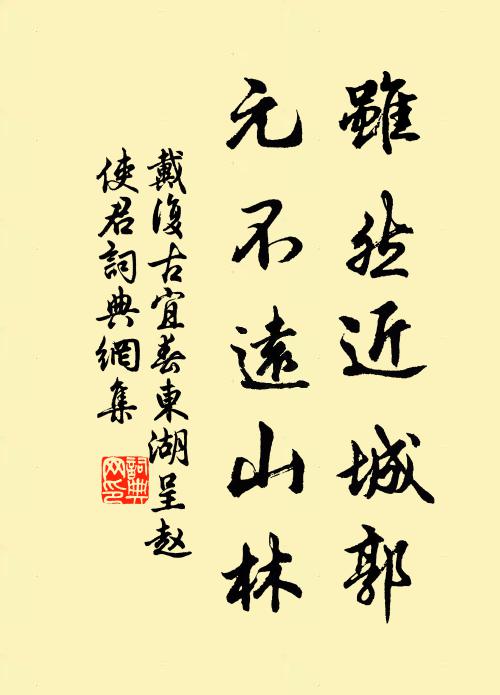 雖然近城郭
元不遠山林
戴復古宜春東湖呈趙
使君詞典網集
詞典
网印